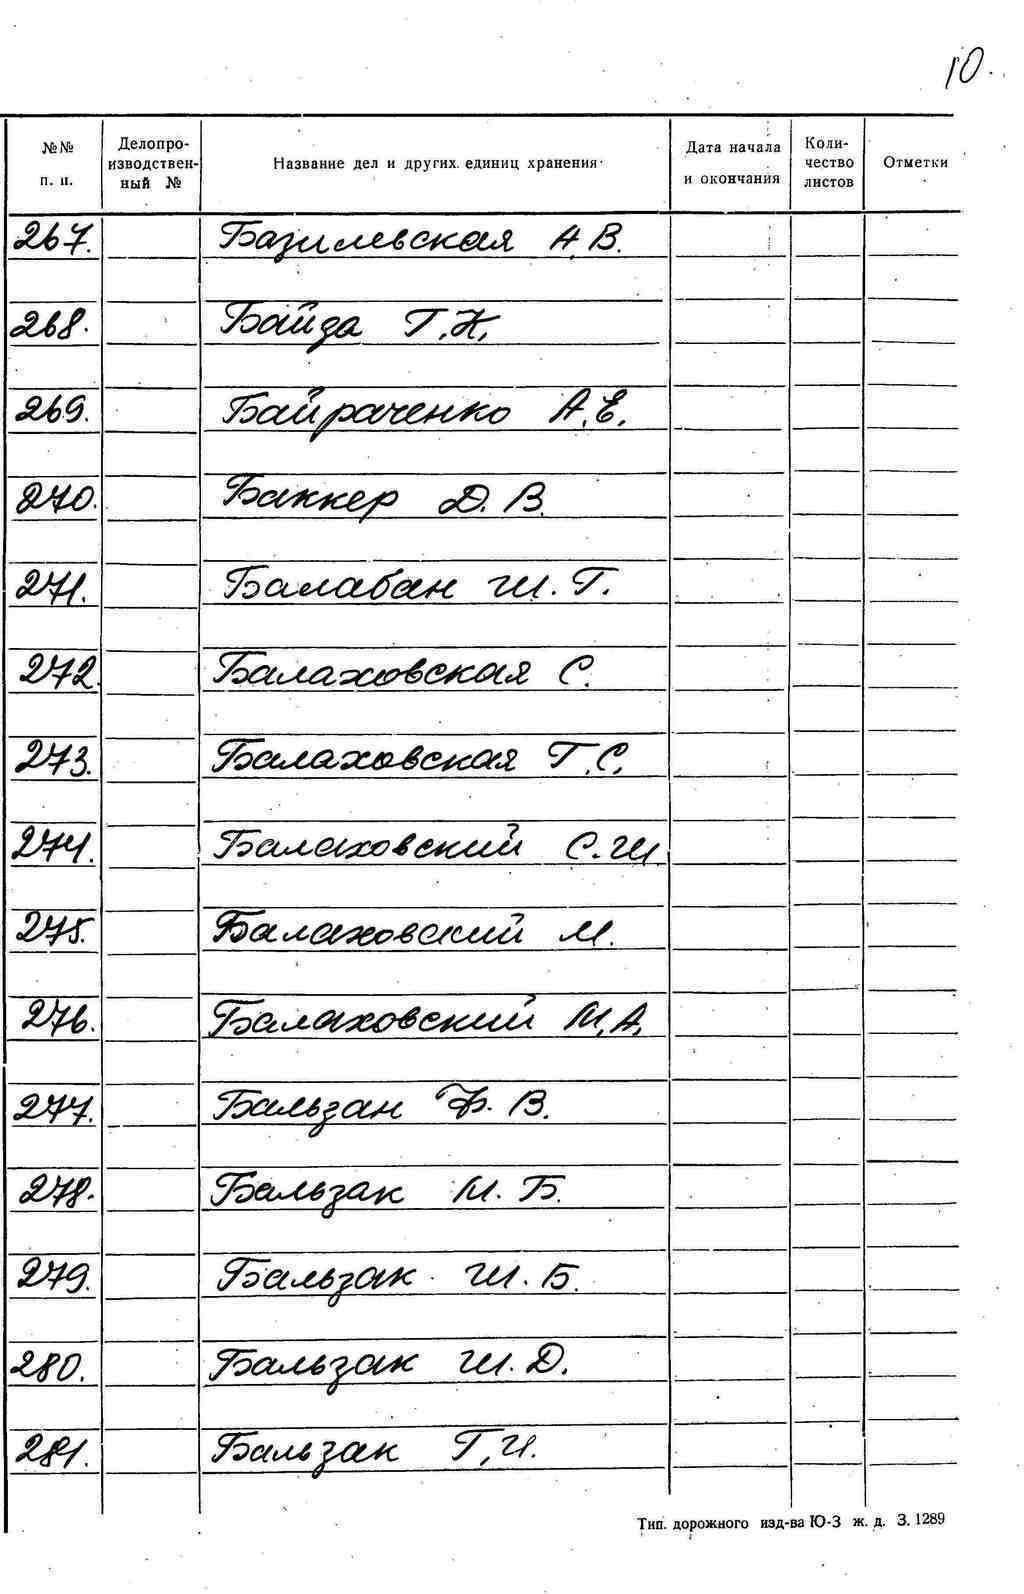 10.
№№ п. п. Делопроизводственный № Название дел и других единиц хранения Дата начала и окончания Количество листов Отметки
267. Базилевская А. В.
268. Байда Г. Н.
269. Байраченко А. Е.
270. Баккер Д. В.
271. Балабан Ш. Г.
272. Балаховская С.
273. Балаховская Г. С.
274. Балаховский С. Ш
275. Балаховский М.
276. Балаховский М. А.
277. Бальзан Ф. В.
278. Бальзак М. Б.
279. Бальзак Ш. Б.
280. Бальзак Ш. Д.
281. Бальзак Г. И.
Тип. дорожного изд-ва Ю-З ж. д. З. 1289